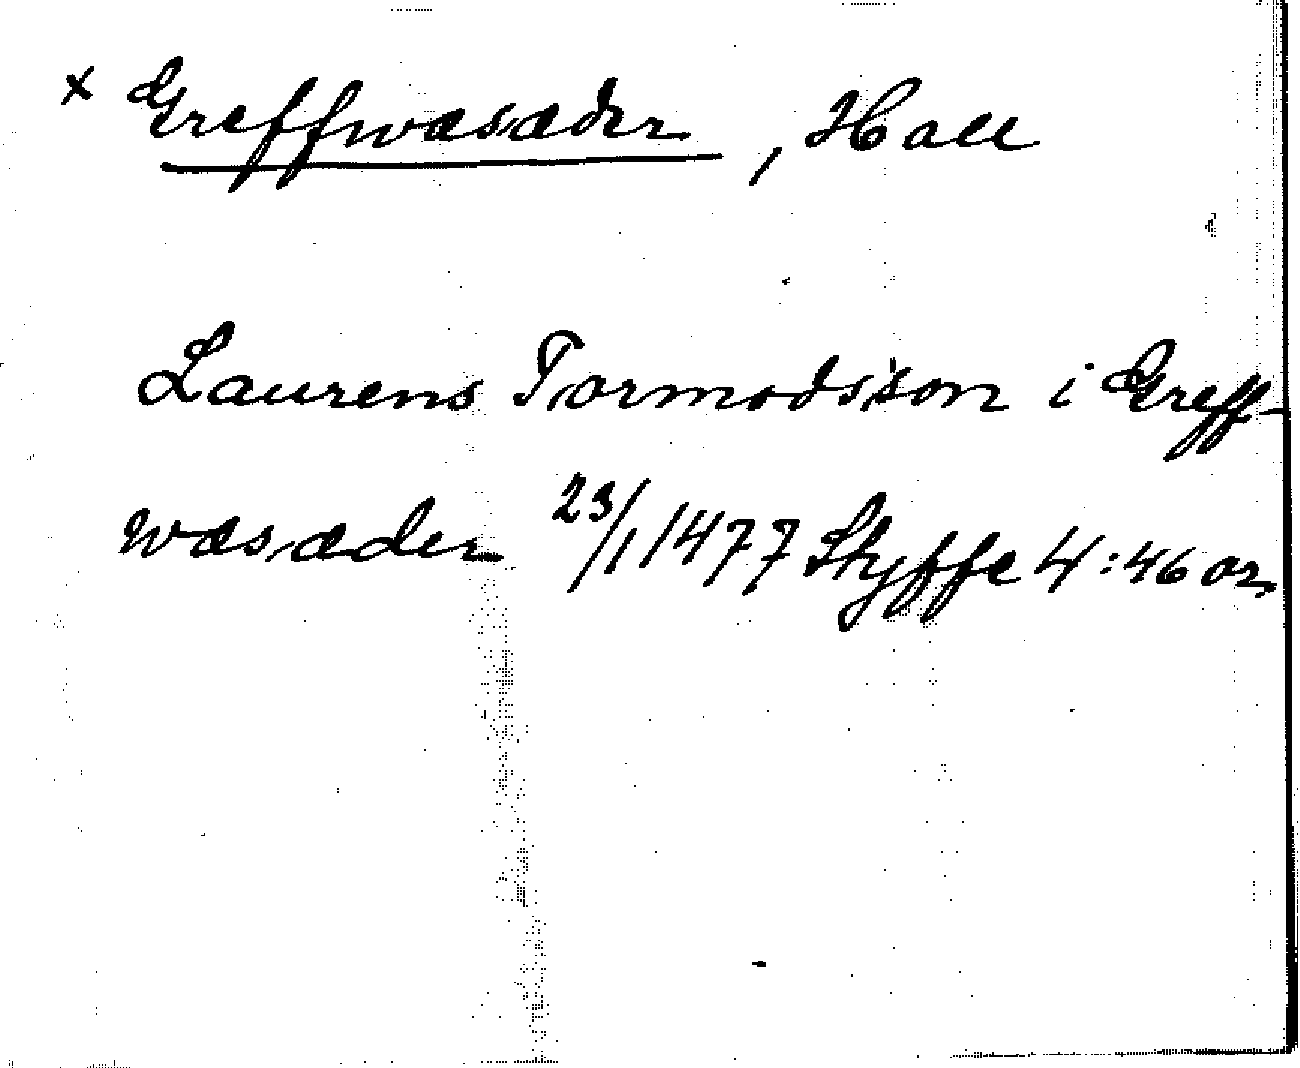 x Greffwæsæder, Hall
Laurens Tormodsson i Greff-
wæsæder 23/1 1477 Styffe 4:46 or.